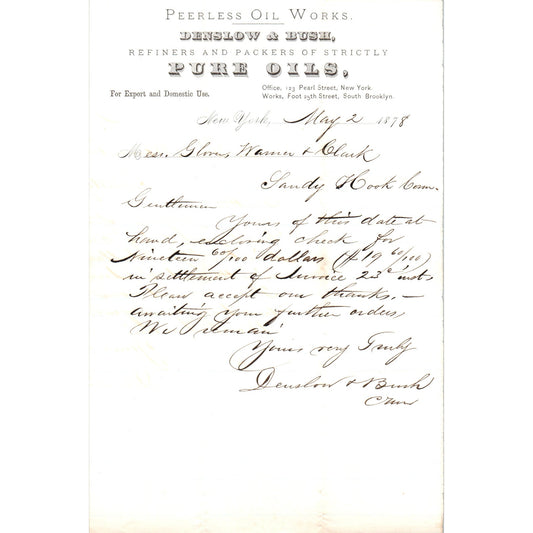 PEERLESS OIL WORKS.
DENSLOW & BUSH,
REFINERS AND PACKERS OF STRICTLY
PURE OILS,
For Export and Domestic Use.
Office, 123 Pearl Street, New York
Works, Foot 25th Street, South Brooklyn.
New York, May 2 1878
Mess. Glover, Warner & Clark
Sandy Hook Conn.
Gentlemen
Yours of this date at
hand, enclosing check for
Nineteen 60/100 dollars ($19 60/100)
in settlement of Invoice 23d inst.
Please accept our thanks. –
awaiting your further orders,
We remain
Yours very Truly
Denslow & Bush